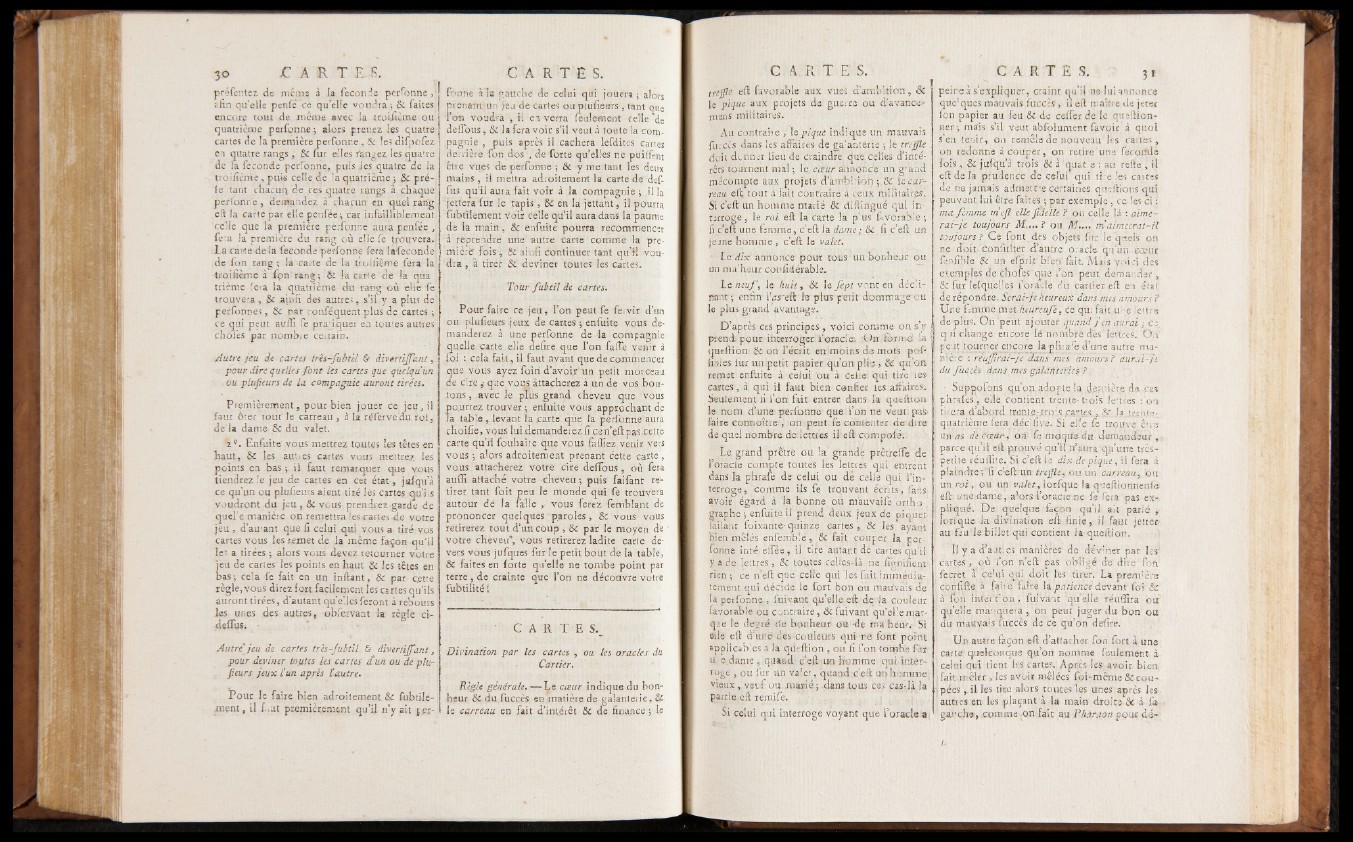 30 CARTES.
préſentez de même à la ſeconde perſonne,
afin qu'elle penſe ce qu'elle voudra; & faites
encore tout de même avec la troiſième ou
quatrième perſonne; alors prenez les quatre
cartes de la première perſonne, & les diſpoſez
en quatre rangs, & ſur elles rangez les quatre
de la ſeconde perſonne, puis les quatre de la
troiſième, puis celle de la quatrième; & pré-
ſentant chacun de ces quatre rangs à chaque
perſonne, demandez à chacun en quel rang
eſt la carte par elle penſée; car infailliblement
celle que la première perſonne aura penſée,
ſera la première du rang où elle ſe trouvera.
La carte de la ſeconde perſonne ſera la ſeconde
de ſon rang; la carte de la troiſième ſera la
troiſième à ſon rang; & la carte de la qua-
trième ſera la quatrième du rang où elle ſe
trouvera, & ainſi des autres, s'il y a plus de
perſonnes, & par conſéquent plus de cartes;
ce qui peut auſſi ſe pratiquer en toutes autres
choſes par nombre certain.
Autre jeu de cartes très-ſubtil & divertiſſant,
pour dire quelles ſont les cartes que quelqu'un
ou pluſieurs de la compagnie auront tirées.
Premièrement, pour bien jouer ce jeu, il
faut ôter tout le carreau, à la réſerve du roi,
de la dame & du valet.
2°. Enſuite vous mettrez toutes les têtes en
haut, & les autres cartes vous mettrez les
points en bas; il faut remarquer que vous
tiendrez le jeu de cartes en cet état, juſqu'à
ce qu'un ou pluſieurs aient tiré les cartes qu'ils
voudront du jeu, & vous prendrez garde de
quelle manière on remettra les cartes de votre
jeu, d'autant que ſi celui qui vous a tiré vos
cartes vous les remet de la même façon qu'il
les a tirées; alors vous devez retourner votre
jeu de cartes les points en haut & les têtes en
bas; cela ſe fait en un inſtant, & par cette
règle, vous direz fort facilement les cartes qu'ils
auront tirées, d'autant qu'elles ſeront à rebours
les unes des autres, obſervant la règle ci-
deſſus.
Autre jeu de cartes très-ſubtil & divertiſſant,
pour deviner toutes les cartes d'un ou de plu-
ſieurs jeux l'un après l'autre.
Pour le faire bien adroitement & ſubtile-
ment, il faut premièrement qu'il n'y ait per-
CARTES.
ſonne à la gauche de celui qui jouera; alors
prenant un jeu de cartes ou pluſieurs, tant que
l'on voudra, il en verra ſeulement celle de
deſſous, & la ſera voir s'il veut à toute la com-
pagnie, puis après il cachera leſdites cartes
derrière ſon dos, de ſorte qu'elles ne puiſſent
être vues de perſonne; & y mettant les deux
mains, il mettra adroitement la carte de deſ-
ſus qu'il aura fait voir à la compagnie; il la
jettera ſur le tapis, & en la jettant, il pourra
ſubtilement voir celle qu'il aura dans la paume
de la main, & enſuite pourra recommencer
à reprendre une autre carte comme la pre-
mière fois, & ainſi continuer tant qu'il vou-
dra, à tirer & deviner toutes les cartes.
Tour ſubtil de cartes.
Pour faire ce jeu, l'on peut ſe ſervir d'un
ou pluſieurs jeux de cartes; enſuite vous de-
manderez à une perſonne de la compagnie
quelle carte elle deſire que l'on faſſe venir à
ſoi: cela fait, il faut avant que de commencer
que vous ayez ſoin d'avoir un petit morceau
de cire, que vous attacherez à un de vos bou-
tons, avec le plus grand cheveu que vous
pourrez trouver; enſuite vous approchant de
la table, levant la carte que la perſonne aura
choiſie, vous lui demanderez ſi ce n'eſt pas cette
carte qu'il ſouhaite que vous faſſiez venir vers
vous; alors adroitement prenant cette carte,
vous attacherez votre cire deſſous, où ſera
auſſi attaché votre cheveu; puis faiſant re-
tirer tant ſoit peu le monde qui ſe trouvera
autour de la ſalle, vous ferez ſemblant de
prononcer quelques paroles, & vous vous
retirerez tout d'un coup, & par le moyen de
votre cheveu, vous retirerez ladite carte de-
vers vous juſques ſur le petit bout de la table,
& faites en ſorte qu'elle ne tombe point par
terre, de crainte que l'on ne découvre votre
ſubtilité!
CARTES.
Divination par les cartes, ou les oracles du
Cartier.
Règle générale. — Le cœur indique du bon-
heur & du ſuccès en matière de galanterie, &
le carreau en fait d'intérêt & de finance; le
CARTES.
treffle eſt favorable aux vues d'ambition, &
le pique aux projets de guerre ou d'avance-
mens militaires.
Au contraire, le pique indique un mauvais
ſuccès dans les affaires de galanterie; le treffle
doit donner lieu de craindre que celles d'inté-
rêts tournent mal; le cœur annonce un grand
mécompte aux projets d'ambition; & le car-
reau eſt tout à fait contraire à ceux militaires.
Si c'eſt un homme marié & diſtingué qui in-
terroge, le roi eſt la carte la plus favorable;
ſi c'eſt une femme, c'eſt la dame; & ſi c'eſt un
jeune homme, c'eſt le valet.
Le dix annonce pour tous un bonheur ou
un malheur conſidérable.
Le neuf, le huit, & le ſept vont en décli-
nant; enfin l'as eſt le plus petit dommage ou
le plus grand avantage.
D'après ces principes, voici comme on s'y
prend pour interroger l'oracle. On forme la
queſtion & on l'écrit en moins de mots poſ-
ſibles ſur un petit papier qu'on plie, & qu'on
remet enſuite à celui ou à celle qui tire les
cartes, à qui il faut bien confier ſes affaires.
Seulement ſi l'on fait entrer dans la queſtion
le nom d'une perſonne que l'on ne veut pas
faire connoître, on peut ſe contenter de dire
de quel nombre de lettres il eſt compoſé.
Le grand prêtre ou la grande prêtreſſe de
l'oracle compte toutes les lettres qui entrent
dans la phraſe de celui ou de celle qui l'in-
terroge, comme ils ſe trouvent écrits, ſans
avoir égard à la bonne ou mauvaiſe ortho-
graphe; enſuite il prend deux jeux de piquet
faiſant ſoixante-quinze cartes, & les ayant
bien mêlés enſemble, & fait couper la per-
ſonne intéreſſée, il tire autant de cartes qu'il
y a de lettres, & toutes celles-là ne ſignifient
rien; ce n'eſt que celle qui les ſuit immédia-
tement qui décide le ſort bon ou mauvais de
la perſonne, ſuivant qu'elle eſt de la couleur
favorable ou contraire, & ſuivant qu'elle mar-
que le degré de bonheur ou de malheur. Si
elle eſt d'une des couleurs qui ne ſont point
applicables à la queſtion, ou ſi l'on tombe ſur
une dame, quand c'eſt un homme qui inter-
roge, ou ſur un valet, quand c'eſt un homme
vieux, veuf ou marié; dans tous ces cas-là la
partie eſt remiſe.
Si celui qui interroge voyant que l'oracle a
CARTES. 31
peine à s'expliquer, craint qu'il ne lui annonce
quelques mauvais ſuccès, il eſt maître de jeter
ſon papier au feu & de ceſſer de le queſtion-
ner; mais s'il veut abſolument ſavoir à quoi
s'en tenir, on remêle de nouveau les cartes,
on redonne à couper, on retire une ſeconde
fois, & juſqu'à trois & à quatre: au reſte, il
eſt de la prudence de celui qui tire les cartes
de ne jamais admettre certaines queſtions qui
peuvent lui être faites; par exemple, celles-ci:
ma femme m'eſt elle fidelle? ou celle là: aime-
rai-je toujours M....? ou M.... m'aimera-t-il
toujours? Ce ſont des objets ſur leſquels on
ne doit conſulter d'autre oracle qu'un cœur
ſenſible & un eſprit bien fait. Mais voici des
exemples de choſes que l'on peut demander,
& ſur leſquelles l'oracle du cartier eſt en état
de répondre. Serai-je heureux dans mes amours?
Une femme met heureuſe, ce qui fait une lettre
de plus. On peut ajouter quand j'en aurai; ce
qui change encore le nombre des lettres. On
peut tourner encore la phraſe d'une autre ma-
nière: réuſſirai-je dans mes amours? aurai-je
du ſuccès dans mes galanteries?
Suppoſons qu'on adopte la dernière de ces
phraſes, elle contient trente-trois lettres: on
tirera d'abord trente-trois cartes, & la trente-
quatrième ſera déciſive. Si elle ſe trouve être
un as de cœur, on ſe moque du demandeur,
parce qu'il eſt prouvé qu'il n'aura qu'une très-
petite réuſſite. Si c'eſt le dix de pique, il ſera à
plaindre; ſi c'eſt un treffle, ou un carreau, ou
un roi, ou un valet, lorſque la queſtionnante
eſt une dame, alors l'oracle ne ſe ſera pas ex-
pliqué. De quelque façon qu'il ait parlé,
lorſque la divination eſt finie, il faut jetter
au feu le billet qui contient la queſtion.
Il y a d'autres manières de deviner par les
cartes, où l'on n'eſt pas obligé de dire ſon
ſecret à celui qui doit les tirer. La première
conſiſte à faire faire la patience devant ſoi &
à ſon intention, ſuivant qu'elle réuſſira ou
qu'elle manquera, on peut juger du bon ou
du mauvais ſuccès de ce qu'on deſire.
Un autre façon eſt d'attacher ſon ſort à une
carte quelconque qu'on nomme ſeulement à
celui qui tient les cartes. Après les avoir bien
fait mêler, les avoir mêlées ſoi-même & cou-
pées, il les tire alors toutes les unes après les
autres en les plaçant à la main droite & à ſa
gauche, comme on fait au Pharaon pour dé-